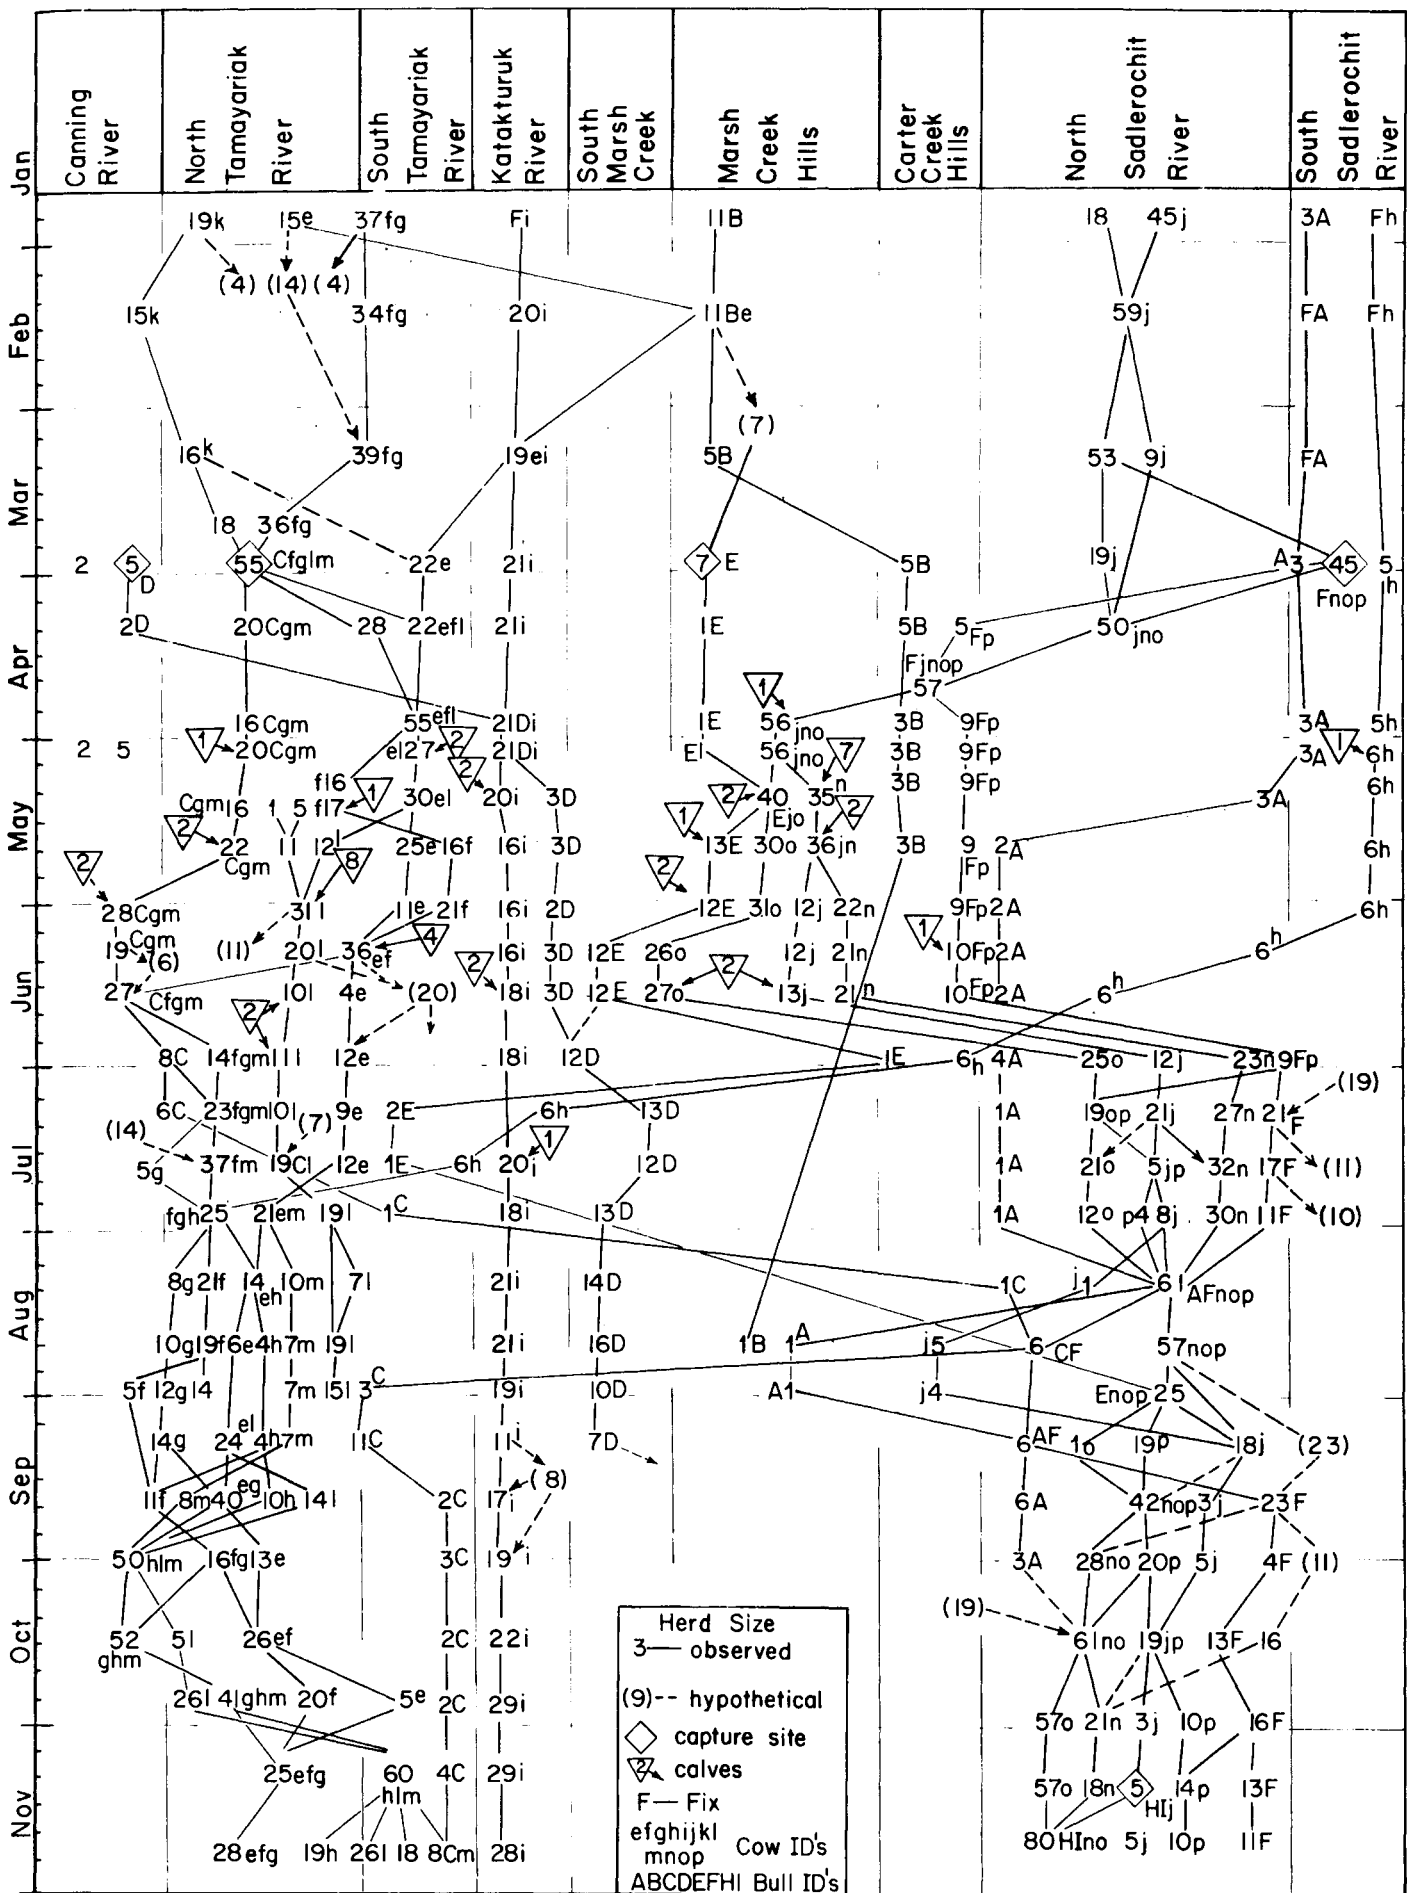 Canning River
North Tamayariak River
South Tamayariak River
Katakturuk River
South Marsh Creek
Marsh Creek Hills
Carter Creek Hills
North Sadlerochit River
South Sadlerochit River
Jan
19k 15e 37fg Fi 11B 18 45j 3A Fh
(4) (14) (4)
Feb
15k 34fg 20i 11Be 59j FA Fh
(7)
16k 39fg 19ei 5B 53 9j FA
Mar
18 36fg
2 5 D 55 Cfglm 22e 21i 7 E 5B 19j A3 45 Fnop 5h
2D 20Cgm 28 22efl 21i 1E 5B 5Fp 50jno
Apr
Fjnop
57
1
16Cgm 55efl 21Di 1E 56jno 3B 9Fp 3A 5h
2 5 1 20Cgm el27 2 21Di E1 56jno 7 3B 9Fp 3A 1 6h
fl6 2 3B 9Fp 6h
Cgm16 1 5 fl7 1 30el 20i 3D 2 40Ejo 35n 3A
May
2 22Cgm 11 12l 25e 16f 16i 3D 1 13E 30o 36jn 2 3B 9Fp 2A 6h
2 8 2
28Cgm 31l 11e 21f 16i 2D 12E 31o 12j 22n 9Fp 2A 6h
19Cgm (6) (11) 20l 36ef 4 16i 3D 12E 26o 12j 21n 1 10Fp 2A 6h
Jun
27Cfgm 2 10l 4e (20) 2 18i 3D 12E 27o 2 13j 21n 10Fp 2A 6h
8C 14fgm 11l 12e 18i 12D 1E 6h 4A 25o 12j 23n 9Fp
(19)
6C 23fgm 10l (7) 9e 2E 6h 13D 1A 19op 21j 27n 21F
(14) 1
Jul
5g 37fm 19Cl 12e 1E 6h 20i 12D 1A 21o 5jp 32n 17F (11)
fgh25 21em 19l 1C 18i 13D 1A 12o p4 8j 30n 11F (10)
8g 21f 14eh 10m 7l 21i 14D 1C j1 61AFnop
Aug
10g 19f 6e 4h 7m 19l 21i 16D 1B 1A j5 6CF 57nop
5f 12g 14 7m 15l 3C 19i 10D A1 j4 Enop25
14g 24el 4h 7m 11C 11i 7D 6AF 1o 19p 18j (23)
Sep
(8)
11f 8m 40eg 10h 14l 2C 17i 6A 42nop 3j 23F
50hlm 16fg 13e 3C 19i 3A 28no 20p 5j 4F (11)
(19)
Oct
52ghm 5l 26ef 2C 22i 61no 19jp 13F 16
26l 41ghm 20f 5e 2C 29i 57o 21n 3j 10p 16F
25efg 60hlm 4C 29i 57o 18n 5 HIj 14p 13F
Nov
28efg 19h 26l 18 8Cm 28i 80HIno 5j 10p 11F
Herd Size
3— observed
(9)-- hypothetical
capture site
2 calves
F— Fix
efghijkl
mnop Cow ID's
ABCDEFHI Bull ID's